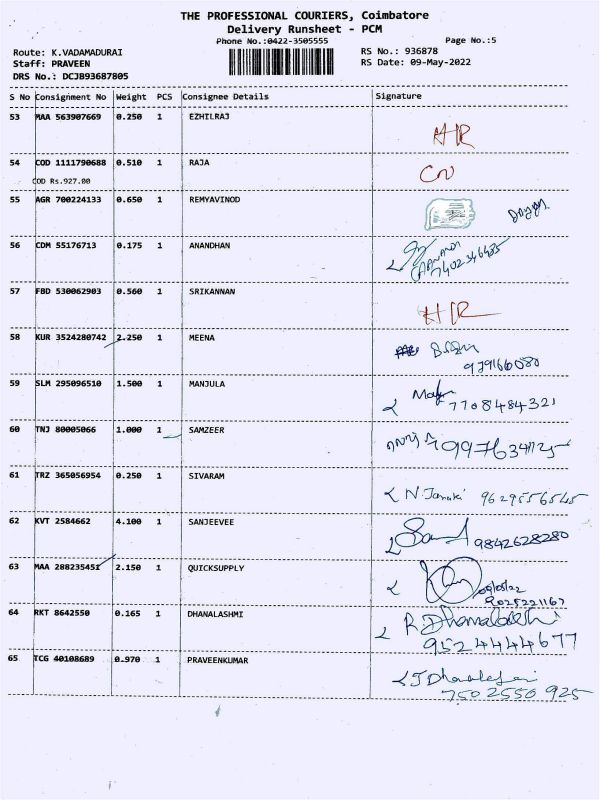 THE PROFESSIONAL COURIERS, Coimbatore
Delivery Runsheet - PCM
Phone No.:0422-3505555 Page No.:5
Route: K.VADAMADURAI RS No.: 936878
Staff: PRAVEEN RS Date: 09-May-2022
DRS No.: DCJB93687805
S No Consignment No Weight PCS Consignee Details Signature
53 MAA 563907669 0.250 1 EZHILRAJ
54 COD 1111790688 0.510 1 RAJA
COD Rs.927.00
55 AGR 700224133 0.650 1 REMYAVINOD
56 CDM 55176713 0.175 1 ANANDHAN
7402346485
57 FBD 530062903 0.560 1 SRIKANNAN
58 KUR 3524280742 2.250 1 MEENA
979166080
59 SLM 295096510 1.500 1 MANJULA
7708484321
60 TNJ 80005066 1.000 1 SAMZEER
61 TRZ 365056954 0.250 1 SIVARAM N. Janaki 9629556545
62 KVT 2584662 4.100 1 SANJEEVEE 9842628280
63 MAA 288235451 2.150 1 QUICKSUPPLY
09/05/22
9025221167
64 RKT 8642550 0.165 1 DHANALASHMI
9524444677
65 TCG 40108689 0.970 1 PRAVEENKUMAR
7502550925